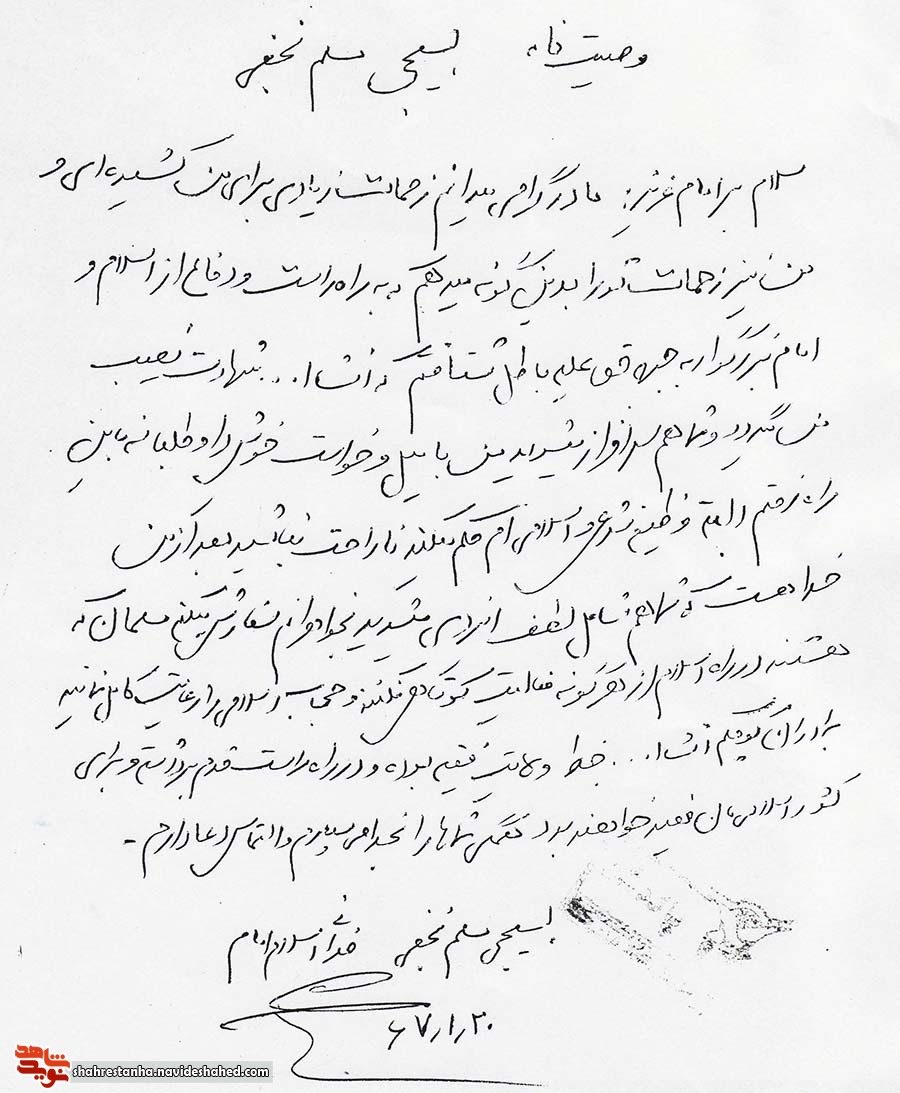 وصیت نامه بسیجی مسلم نجفی
سلام بر امام عزیز: مادر گرامی میدانم زحمات زیادی برای من کشیده ای و
من نیز زحمات تو را بدین گونه میدهم که به راه راست و دفاع از اسلام و
امام بزرگوار به جبهه حق علیه باطل شتافتم که انشا ا... شهادت نصیب
من گردد و شما هم سرافراز شوید من با میل و خواست خویش داوطلبانه باین
راه رفتم البته وظیفه شرعی و اسلامی ام حکم میکند ناراحت نباشید بعد از من
خدا هست که شما هم شامل لطف ایزدی میشوید بخواهرانم سفارش میکنم مسلمان که
هستند در راه اسلام از هر گونه فعالیت کوتاهی نکنند و حجاب اسلامی را رعایت کامل نمایند
برادران کوچکم انشا ا... خط ولایت فقیه بوده و در راه راست قدم برداشته و برای
کشور اسلامی مان مفید خواهند بود همگی شما ها را بخدا می سپارم و التماس دعا دارم -
بسیجی مسلم نجفی فدائی اسلام و امام
۶۷/۱/۲۰
نوید شاهد
shahrestanha.navideshahed.com